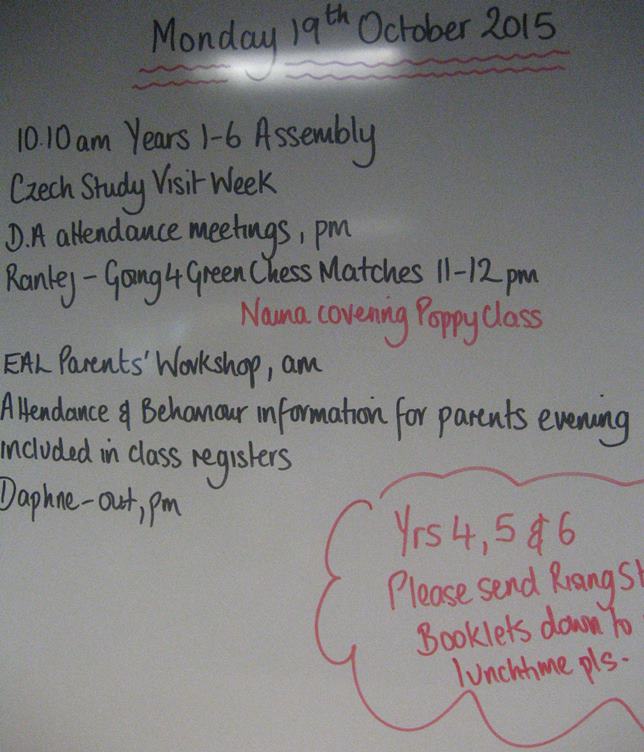 Monday 19th October 2015
10.10 am Years 1-6 Assembly
Czech Study Visit Week
D.A attendance meetings, pm
Rantej - Going 4 Green Chess Matches 11-12 pm
Naina covering Poppy Class
EAL Parents' Workshop, am
Attendance & Behaviour information for parents evening
included in class registers
Daphne - out, pm
Yrs 4, 5 & 6
Please send Rising St
Booklets down to
lunchtime pls.